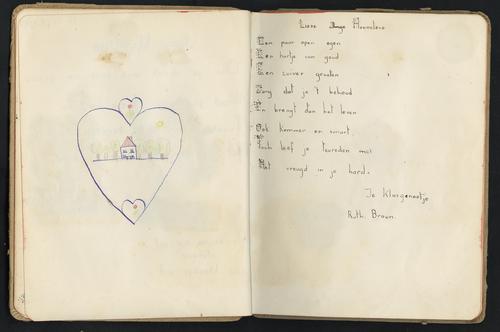 Lieve Hannelore
Een paar open ogen
Een hartje van goud
Een zuiver geweten
Zorg dat je 't behoud
En brengt dan het leven
Ook kommer en smart
Toch leef je tevreden met
Met vreugd in je hard.
Je Klasgenootje
Ruth. Braun.